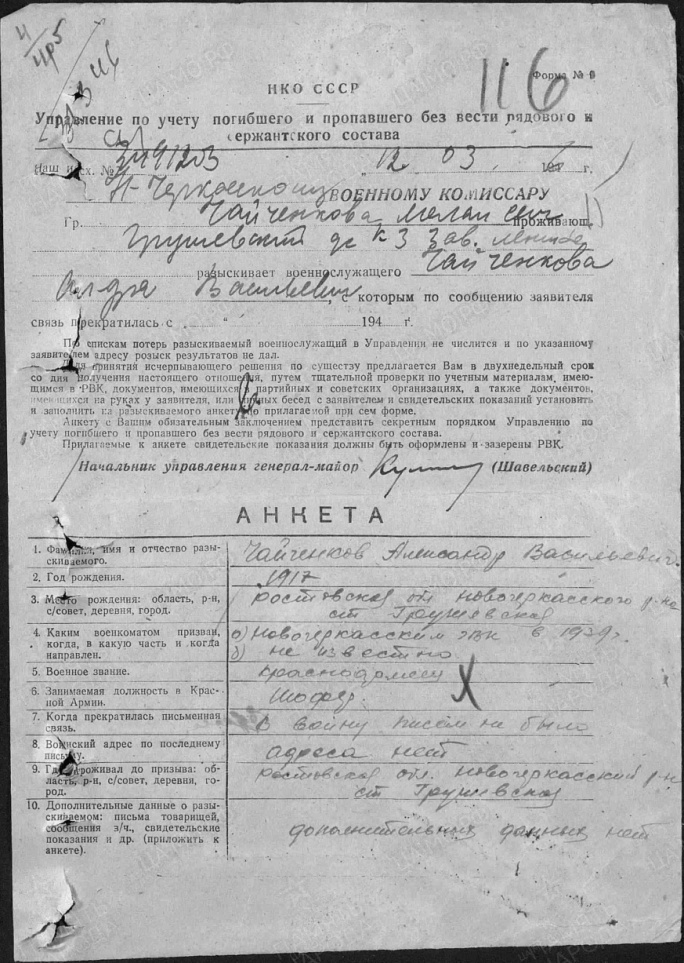 4/4р5
116
Форма № 6
НКО СССР
Управление по учету погибшего и пропавшего без вести рядового и
сержантского состава
Наш исх. № 3491203 „12 03. 6 г.
Н-Черкасскому ВОЕННОМУ КОМИССАРУ
Гр. Чайченкова проживающ.
Грушевский с к 3
разыскивает военнослужащего Чайченкова
Ал-дра Васильевич, с которым по сообщению заявителя
связь прекратилась с „ “ 194 г.
По спискам потерь разыскиваемый военнослужащий в Управлении не числится и по указанному
заявителем адресу розыск результатов не дал.
Для принятия исчерпывающего решения по существу предлагается Вам в двухнедельный срок
со дня получения настоящего отношения, путем тщательной проверки по учетным материалам, имею-
щимся в РВК, документов, имеющихся в партийных и советских организациях, а также документов,
имеющихся на руках у заявителя, или личных бесед с заявителем и свидетельских показаний установить
и заполнить на разыскиваемого анкету по прилагаемой при сем форме.
Анкету с Вашим обязательным заключением представить секретным порядком Управлению по
учету погибшего и пропавшего без вести рядового и сержантского состава.
Прилагаемые к анкете свидетельские показания должны быть оформлены и заверены РВК.
Начальник управления генерал-майор (Шавельский)
АНКЕТА
1. Фамилия, имя и отчество разы-
скиваемого.
Чайченков Александр Васильевич.
2. Год рождения.
1917
3. Место рождения: область, р-н,
с/совет, деревня, город.
Ростовская обл новочеркасского р-на
ст Грушевская
4. Каким военкоматом призван,
когда, в какую часть и когда
направлен.
а) Новочеркасским в 1939г.
б) не известно
5. Военное звание.
Красноармеец
6. Занимаемая должность в Крас-
ной Армии.
Шофер.
7. Когда прекратилась письменная
связь.
В войну писем не было
8. Воинский адрес по последнему
письму.
адреса нет
9. Где проживал до призыва: об-
ласть, р-н, с/совет, деревни, го-
род.
Ростовская обл. новочеркасский р-н
ст Грушевская
10. Дополнительные данные о разы-
скиваемом: письма товарищей,
сообщения з/ч., свидетельские
показания и др. (приложить к
анкете).
дополнительных данных нет